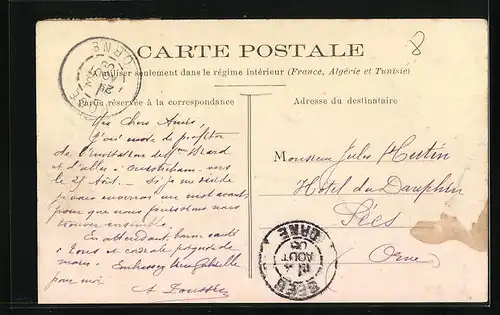 8
CARTE POSTALE
A utiliser seulement dans le régime intérieur (France, Algérie et Tunisie)
Partie réservée à la correspondance
Adresse du destinataire
Mes Chers Amis,
de profiter
de l'invitation de Mme
et d'aller à Ouistreham vers
le 25 Août. Si je me décide
je vous enverrai un mot avant
pour que nous puissions nous
trouver ensemble.
En attendant, bonne santé
à tous et cordiale poignée de
mains. Embrassez
pour moi
A.
Monsieur Jules Hutin
Hôtel du Dauphin
Sées
Orne
ORNE
ORNE
AOUT